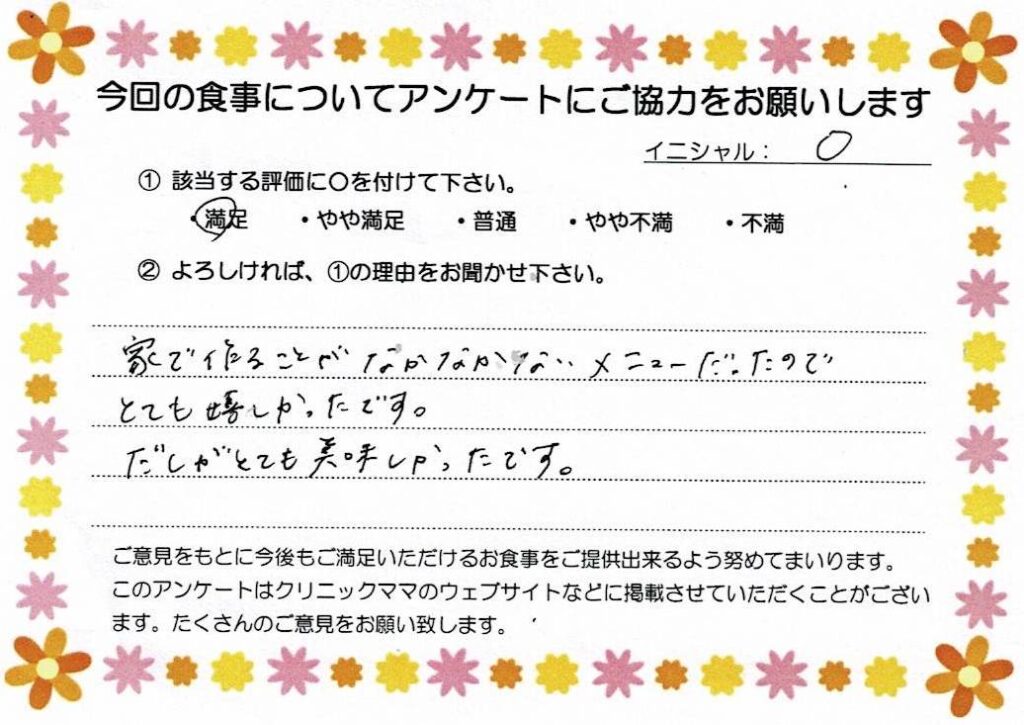 今回の食事についてアンケートにご協力をお願いします
イニシャル： O
① 該当する評価に〇を付けて下さい。
・満足 ・やや満足 ・普通 ・やや不満 ・不満
② よろしければ、①の理由をお聞かせ下さい。
家で作ることがなかなかない メニューだったので
とても嬉しかったです。
だしがとても美味しかったです。
ご意見をもとに今後もご満足いただけるお食事をご提供出来るよう努めてまいります。
このアンケートはクリニックママのウェブサイトなどに掲載させていただくことがござい
ます。たくさんのご意見をお願い致します。